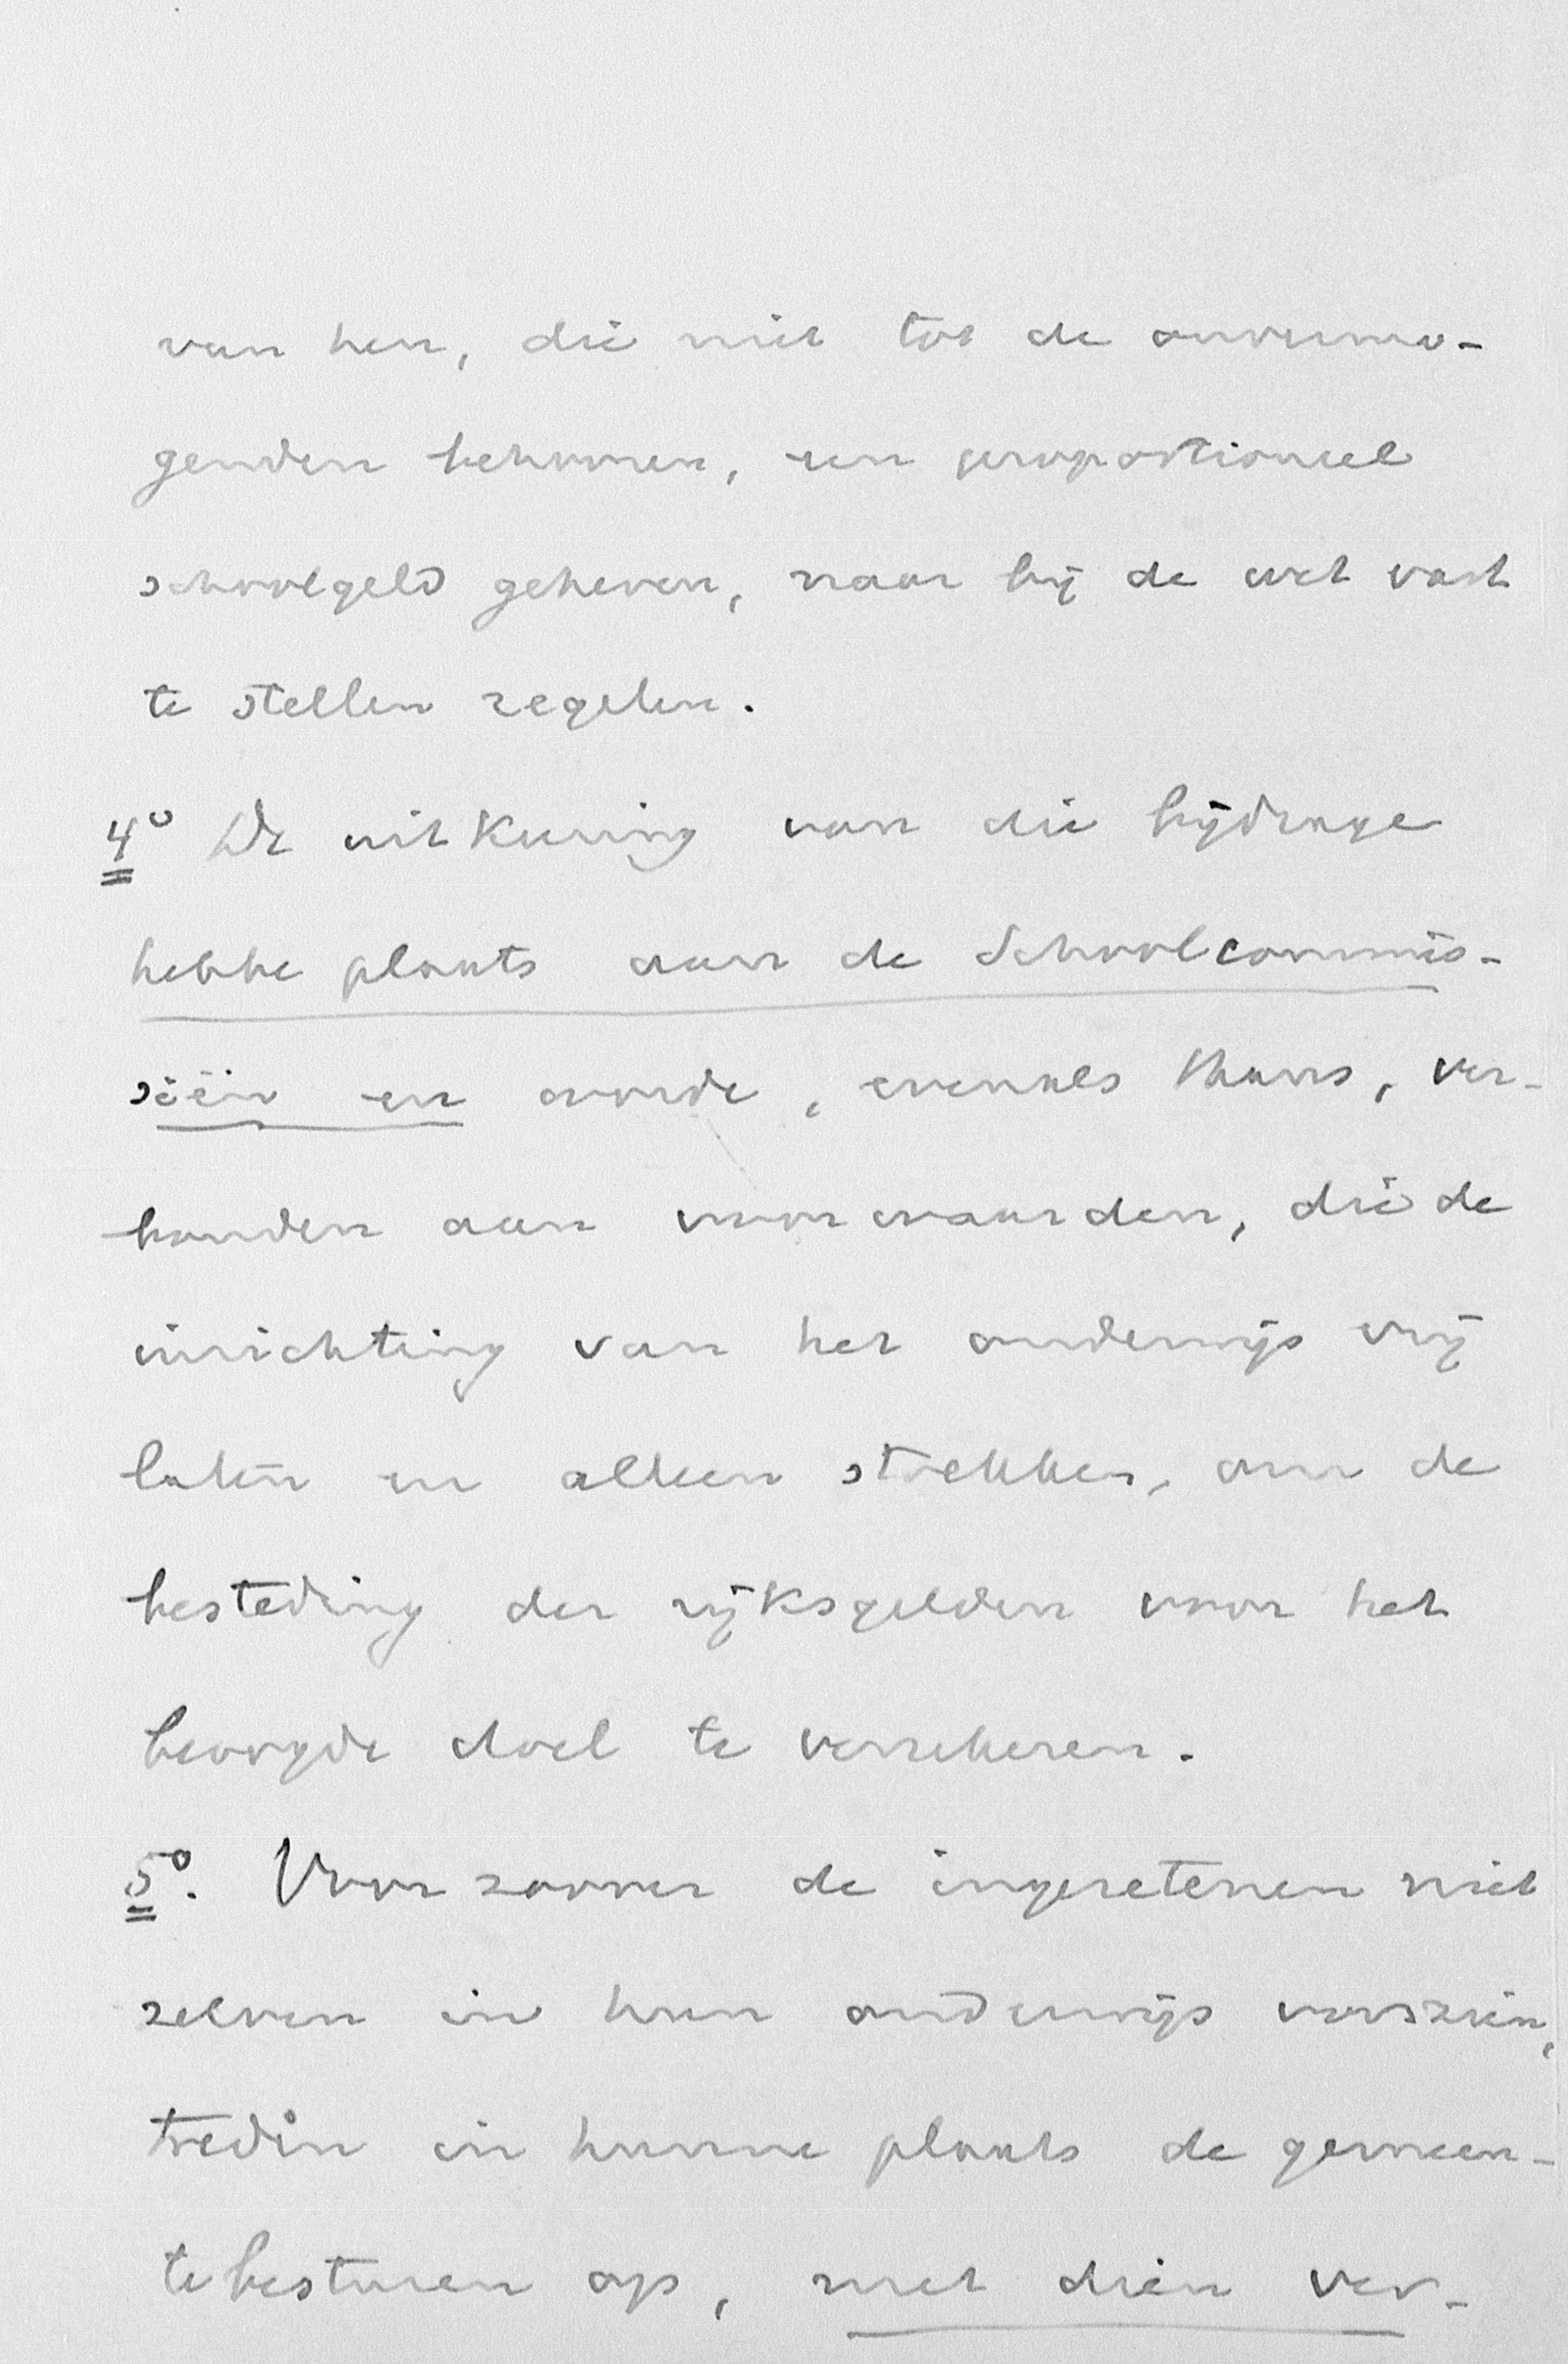 van hen, die niet tot de onvermo-
genden behooren, een proportioneel
schoolgeld geheven, naar bij de wet vast
te stellen regelen.
4° De uitkeering van die bijdrage
hebbe plaats aan de Schoolcommis-
siën en worde, evenals thans, ver-
bonden aan voorwaarden, die de
inrichting van het onderwijs vrij
laten en alleen strekken, om de
besteding der rijksgelden voor het
beoogde doel te verzekeren.
5°. Voor zoover de ingezetenen niet
zelven in hun onderwijs voorzien,
treden in hunne plaats de gemeen-
tebesturen op, met dien ver-